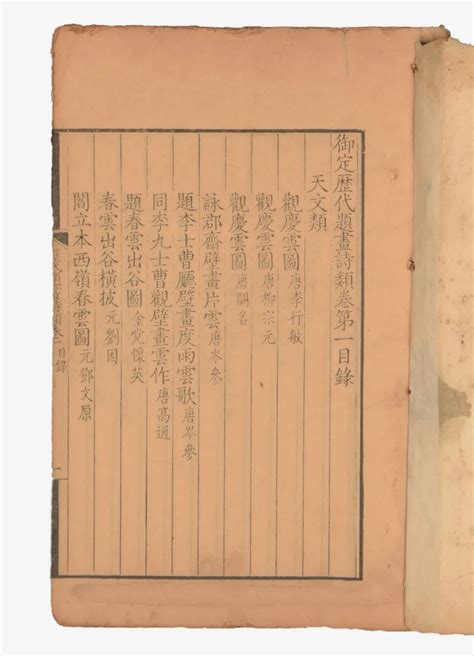 御定歷代題畫詩類卷第一目錄
天文類
觀慶雲圖 唐李行敏
觀慶雲圖 唐柳宗元
觀慶雲圖 唐闕名
詠郡齋壁畫片雲 唐岑參
題李士曹廳壁畫度雨雲歌 唐岑參
同李九士曹觀壁畫雲作 唐高適
題春雲出谷圖 金党懷英
春雲出谷橫披 元劉因
閻立本西嶺春雲圖 元鄧文原
目錄
一